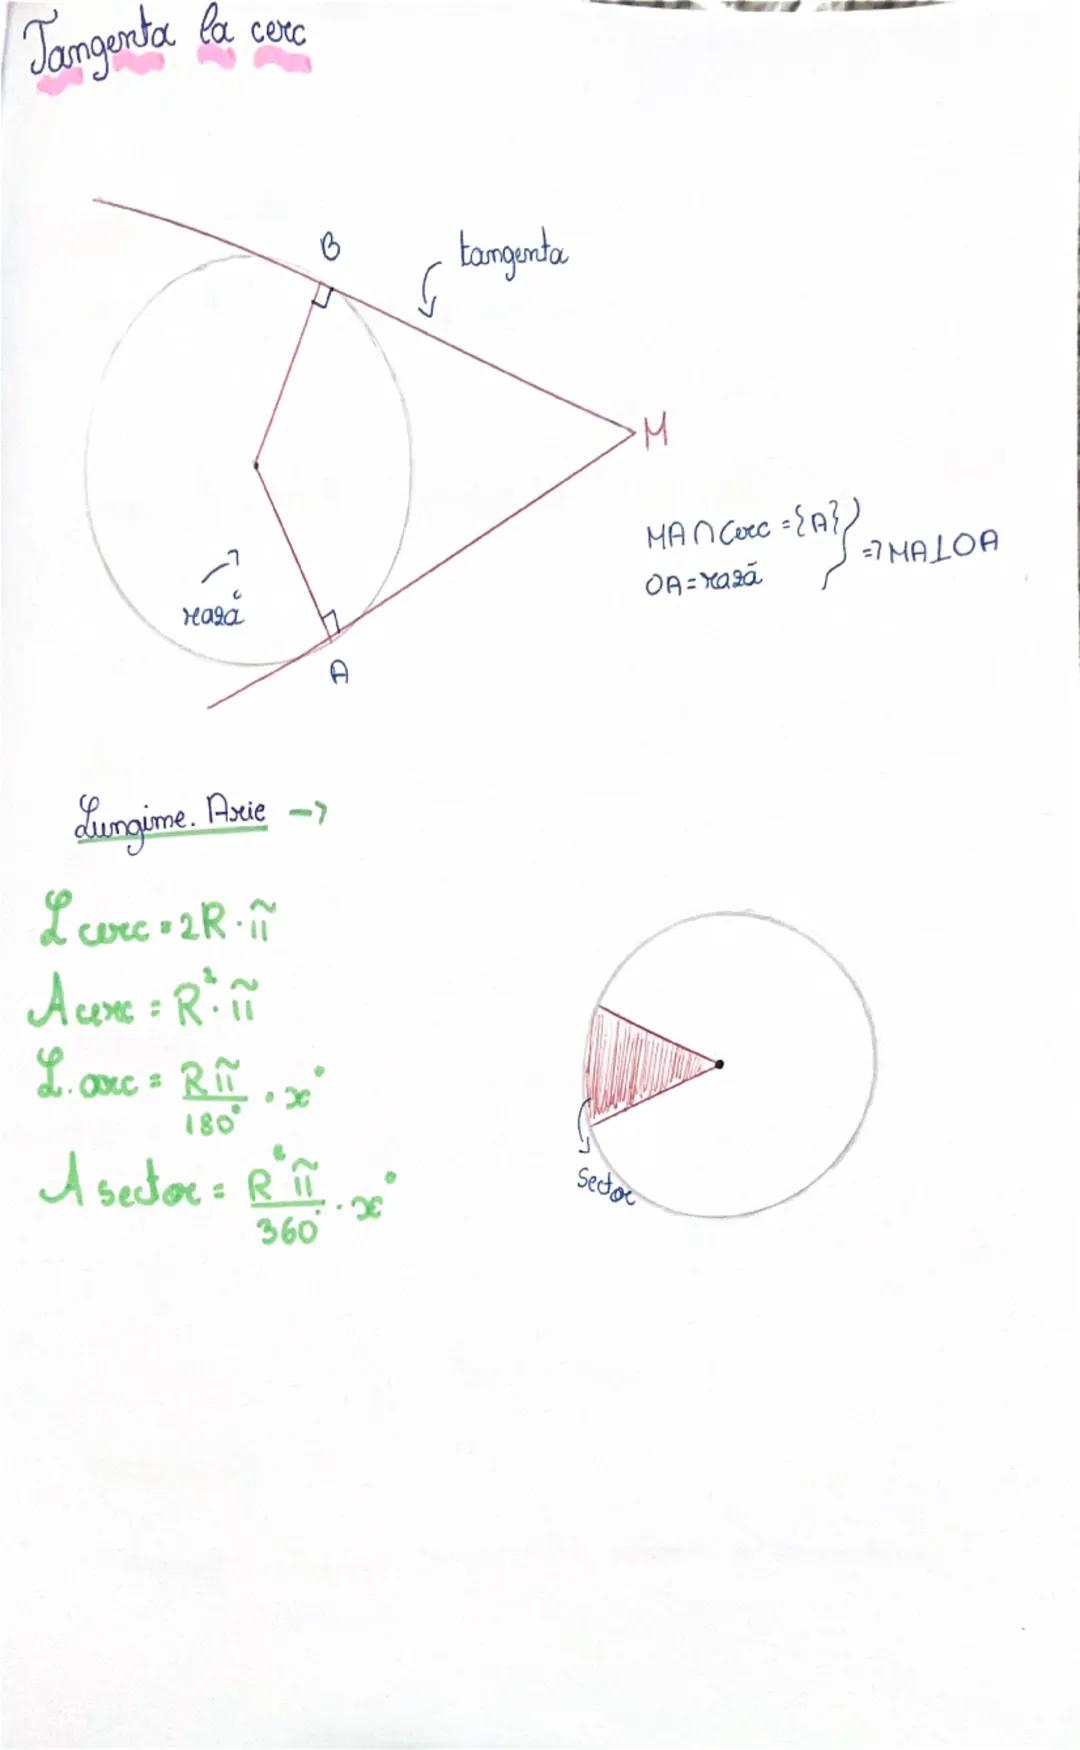 Tangenta la cerc
B
tangenta
M
MA∩Cerc = {A} } => MA⊥OA
OA = rază
rază
A
Lungime. Arie ->
L cerc = 2R·π
A cerc = R²·π
L. arc = Rπ/180° · x°
A sector = R²π/360° · x°
Sector